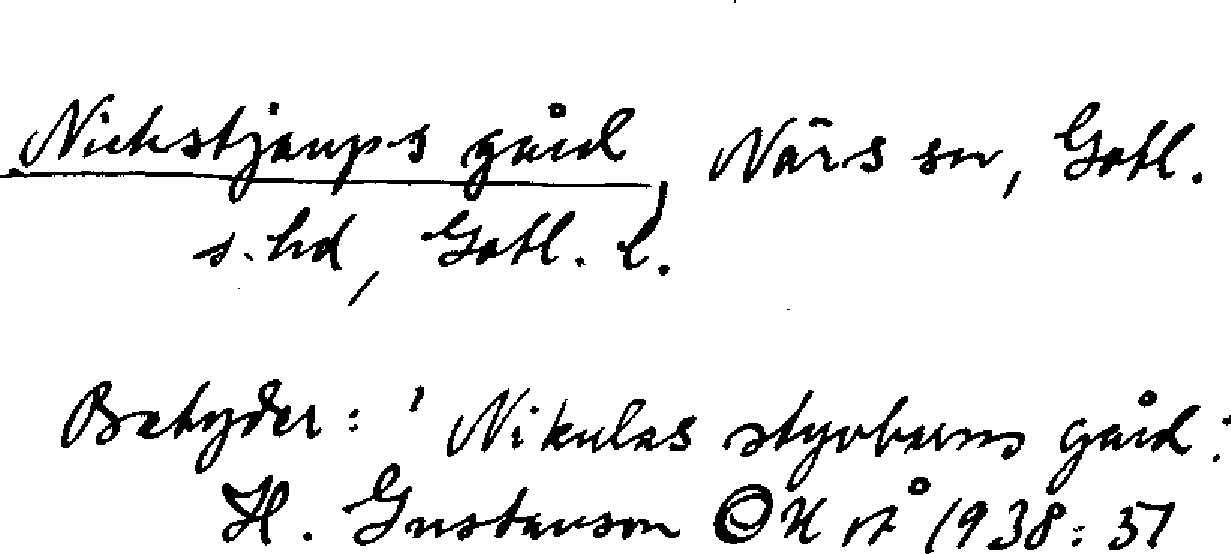 Nickstjaups gård, När s sn, Gotl.
s. hd, Gotl. l.
Betyder: 'Nikulas styvbarns gård'.
H. Gustavson OK rå 1938: 57